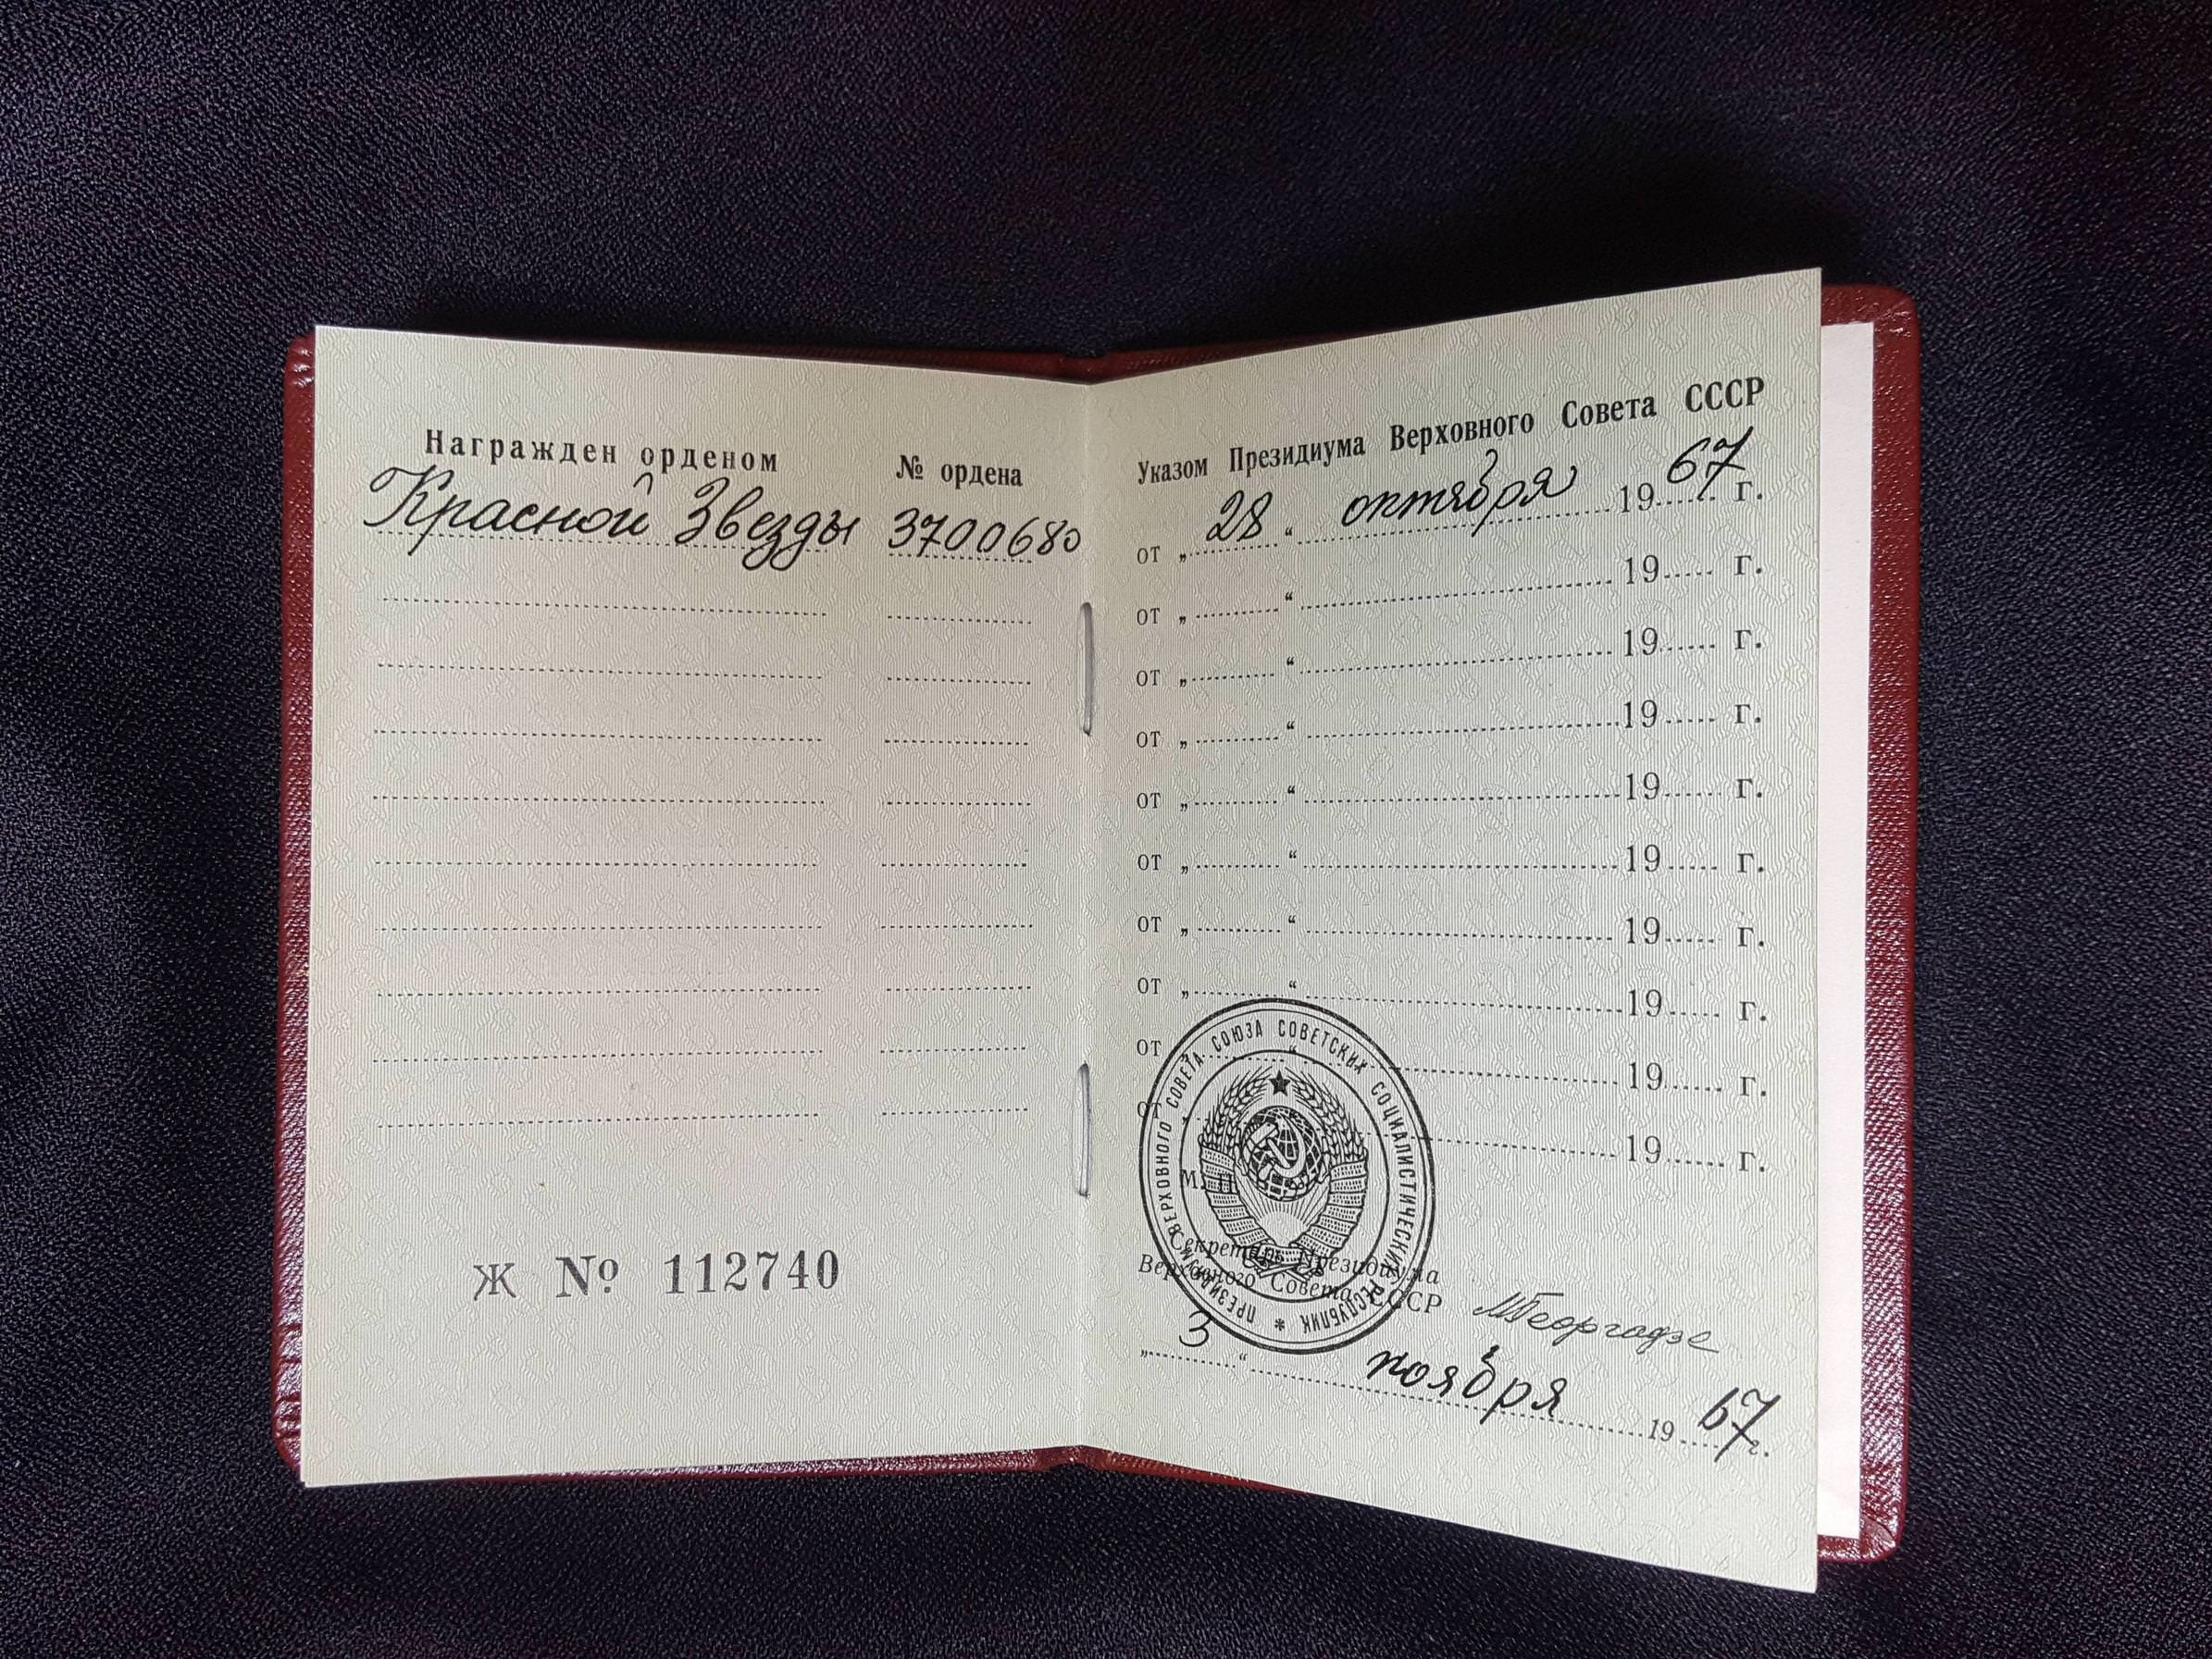 Награжден орденом № ордена
Красной Звезды 3700680
Ж № 112740
Указом Президиума Верховного Совета СССР
от „ 28 “ октября 1967 г.
от „ “ 19 г.
от „ “ 19 г.
от „ “ 19 г.
от „ “ 19 г.
от „ “ 19 г.
от „ “ 19 г.
от „ “ 19 г.
от “ 19 г.
от 19 г.
М. П.
ПРЕЗИДИУМ ВЕРХОВНОГО СОВЕТА СОЮЗА СОВЕТСКИХ СОЦИАЛИСТИЧЕСКИХ РЕСПУБЛИК *
Секретарь Президиума
Верховного Совета СССР МГеоргадзе
„ 3 “ ноября 1967 г.